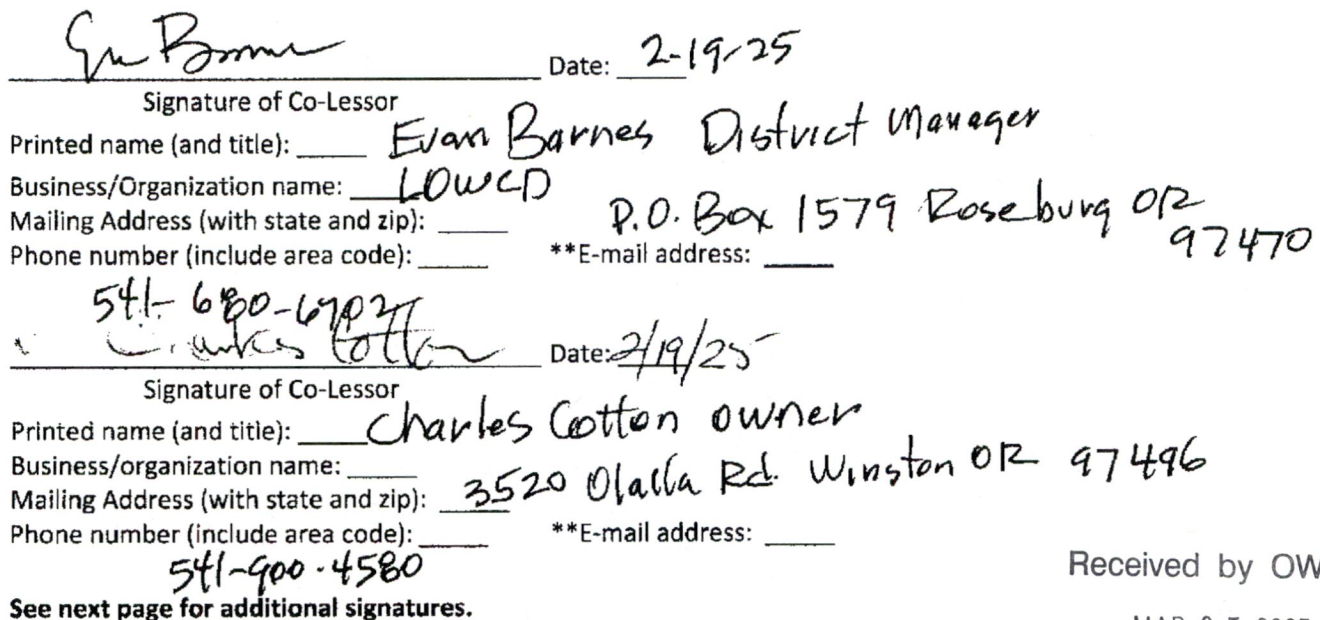 Date: 2-19-25
Signature of Co-Lessor
Printed name (and title): Evan Barnes District Manager
Business/Organization name: LOWCD
Mailing Address (with state and zip): P.O. Box 1579 Roseburg OR
97470
Phone number (include area code): **E-mail address:
541-
Charles Cotton Date: 2/19/25
Signature of Co-Lessor
Printed name (and title): Charles Cotton owner
Business/organization name:
Mailing Address (with state and zip): 3520 Olalla Rd. Winston OR 97496
Phone number (include area code): **E-mail address:
541-900-4580
Received by OW
See next page for additional signatures.